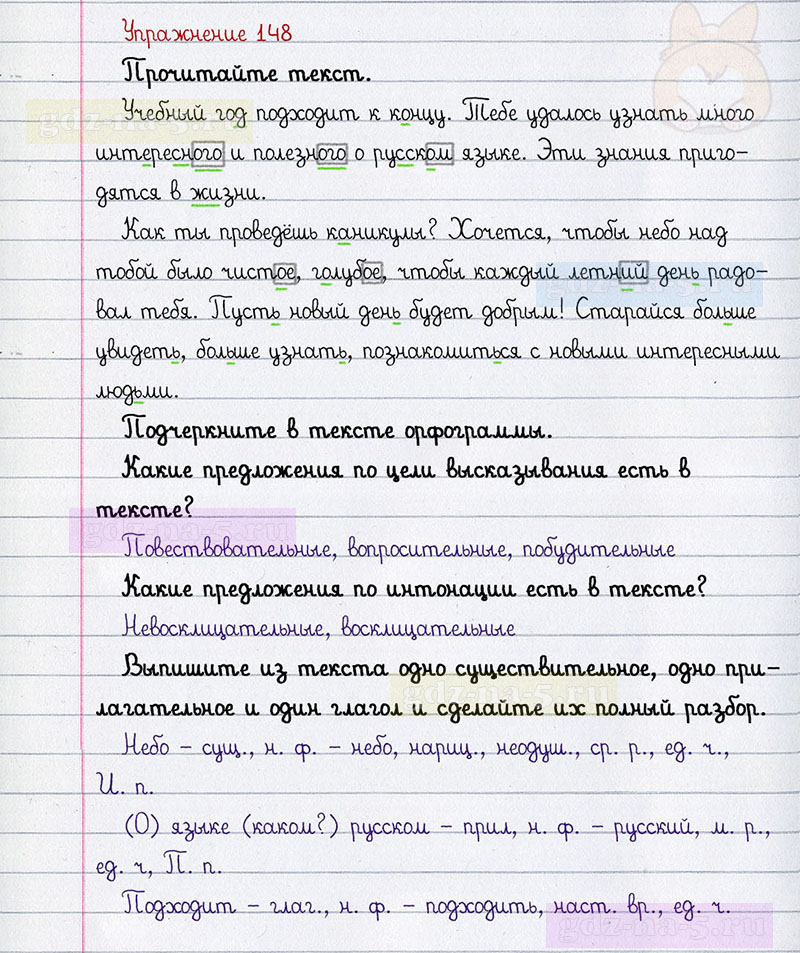 Упражнение 148
Прочитайте текст.
Учебный год подходит к концу. Тебе удалось узнать много
интересного и полезного о русском языке. Эти знания приго-
дятся в жизни.
Как ты проведёшь каникулы? Хочется, чтобы небо над
тобой было чистое, голубое, чтобы каждый летний день радо-
вал тебя. Пусть новый день будет добрым! Старайся больше
увидеть, больше узнать, познакомиться с новыми интересными
людьми.
Подчеркните в тексте орфограммы.
Какие предложения по цели высказывания есть в
тексте?
Повествовательные, вопросительные, побудительные
Какие предложения по интонации есть в тексте?
Невосклицательные, восклицательные
Выпишите из текста одно существительное, одно при-
лагательное и один глагол и сделайте их полный разбор.
Небо – сущ., н. ф. – небо, нариц., неодуш., ср. р., ед. ч.,
И. п.
(О) языке (каком?) русском – прил, н. ф. – русский, м. р.,
ед. ч, П. п.
Подходит – глаг., н. ф. – подходить, наст. вр., ед. ч.
gdz-na-5.ru
gdz-na-5.ru
gdz-na-5.ru
gdz-na-5.ru
gdz-na-5.ru